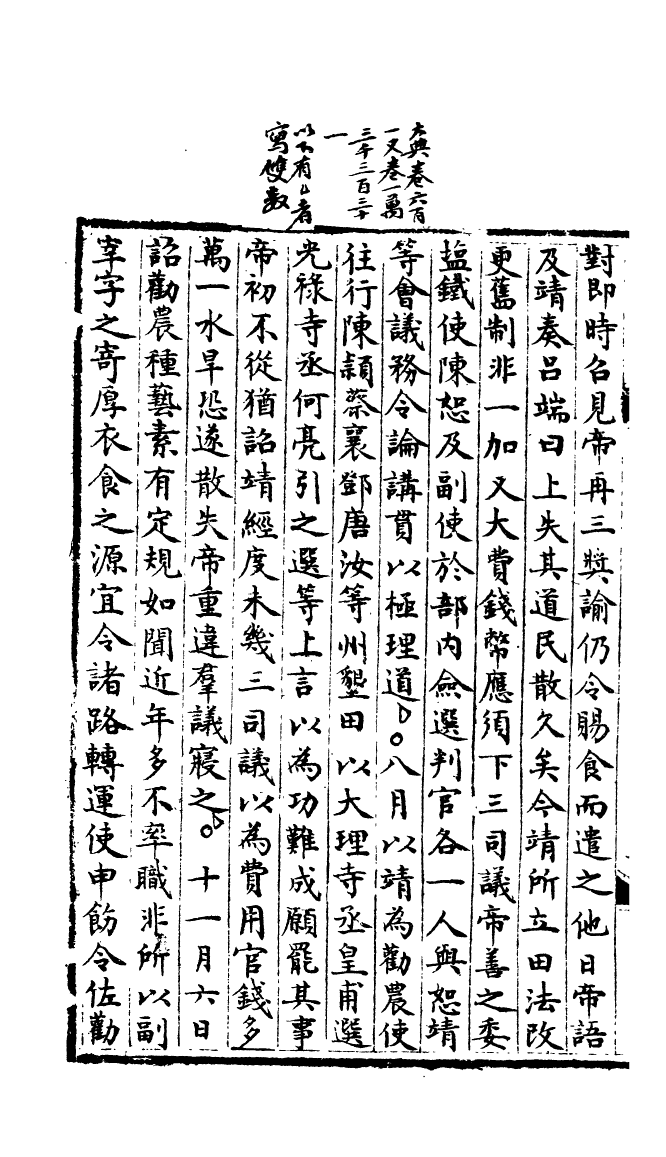 大典卷六百
一又卷一萬
三千三百三十
一
以下有乙者
寫雙數
對即時召見帝再三獎諭仍令賜食而遣之他日帝語
及靖奏呂端曰上失其道民散久矣今靖所立田法改
更舊制非一加又大費錢幣應須下三司議帝善之委
塩鐵使陳恕及副使於部內僉選判官各一人與恕靖
等會議務令論講貫以極理道○八月以靖為勸農使
往行陳頴蔡襄鄧唐汝等州墾田以大理寺丞皇甫選
光祿寺丞何亮引之選等上言以為功難成願罷其事
帝初不從猶詔靖經度未幾三司議以為費用官錢多
萬一水旱恐遂散失帝重違羣議寢之○十一月六日
詔勸農種藝素有定規如聞近年多不率職非所以副
宰字之寄厚衣食之源宜令諸路轉運使申飭令佐勸